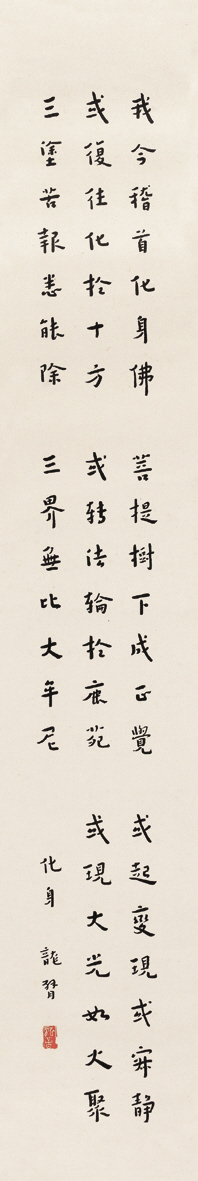 我今稽首化身佛 菩提樹下成正覺 或起變現或寂靜
或復往化於十方 或轉法輪於鹿苑 或現大光如火聚
三塗苦報悉能除 三界無比大牟尼
化身 龍臂